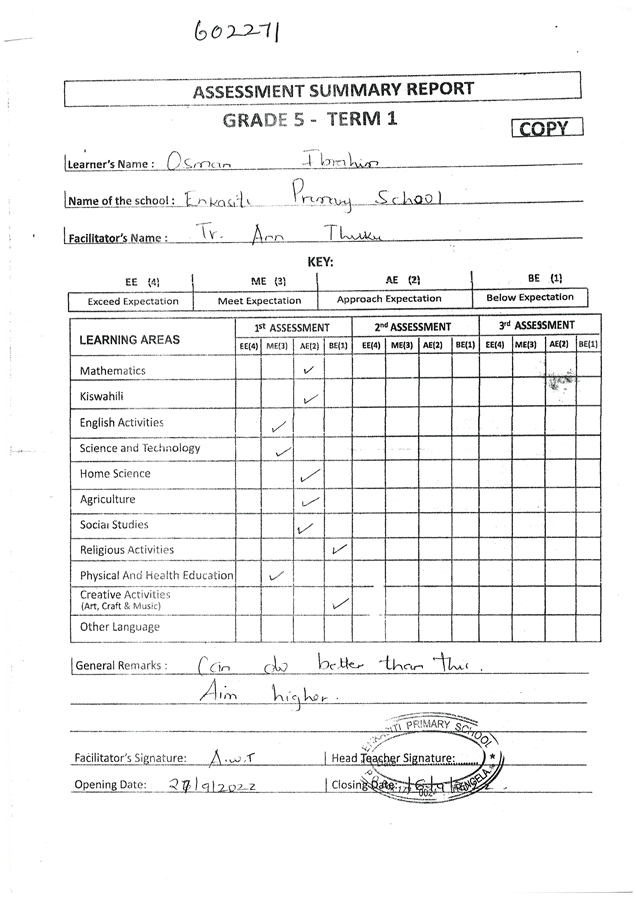 602271
ASSESSMENT SUMMARY REPORT
GRADE 5 - TERM 1
COPY
Learner's Name : Osman Ibrahim
Name of the school : Enkasiti Primary School
Facilitator's Name : Tr. Ann Thuku
KEY:
EE (4) ME (3) AE (2) BE (1)
Exceed Expectation Meet Expectation Approach Expectation Below Expectation
LEARNING AREAS 1st ASSESSMENT 2nd ASSESSMENT 3rd ASSESSMENT
EE(4) ME(3) AE(2) BE(1) EE(4) ME(3) AE(2) BE(1) EE(4) ME(3) AE(2) BE(1)
Mathematics ✓
Kiswahili ✓
English Activities ✓
Science and Technology ✓
Home Science ✓
Agriculture ✓
Social Studies ✓
Religious Activities ✓
Physical And Health Education ✓
Creative Activities ✓
(Art, Craft & Music)
Other Language
General Remarks : Can do better than this.
Aim higher.
PRIMARY SCHOOL
Facilitator's Signature: A.w.T Head Teacher Signature:
Opening Date: 27/9/2022 Closing Date: